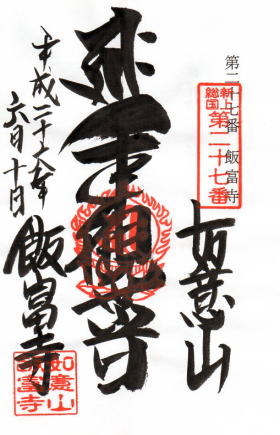 第二十七番 飯富寺
新上
総国
第二十七番
如意山
平成二十六年
六月十日
飯富寺
如意山
飯富寺